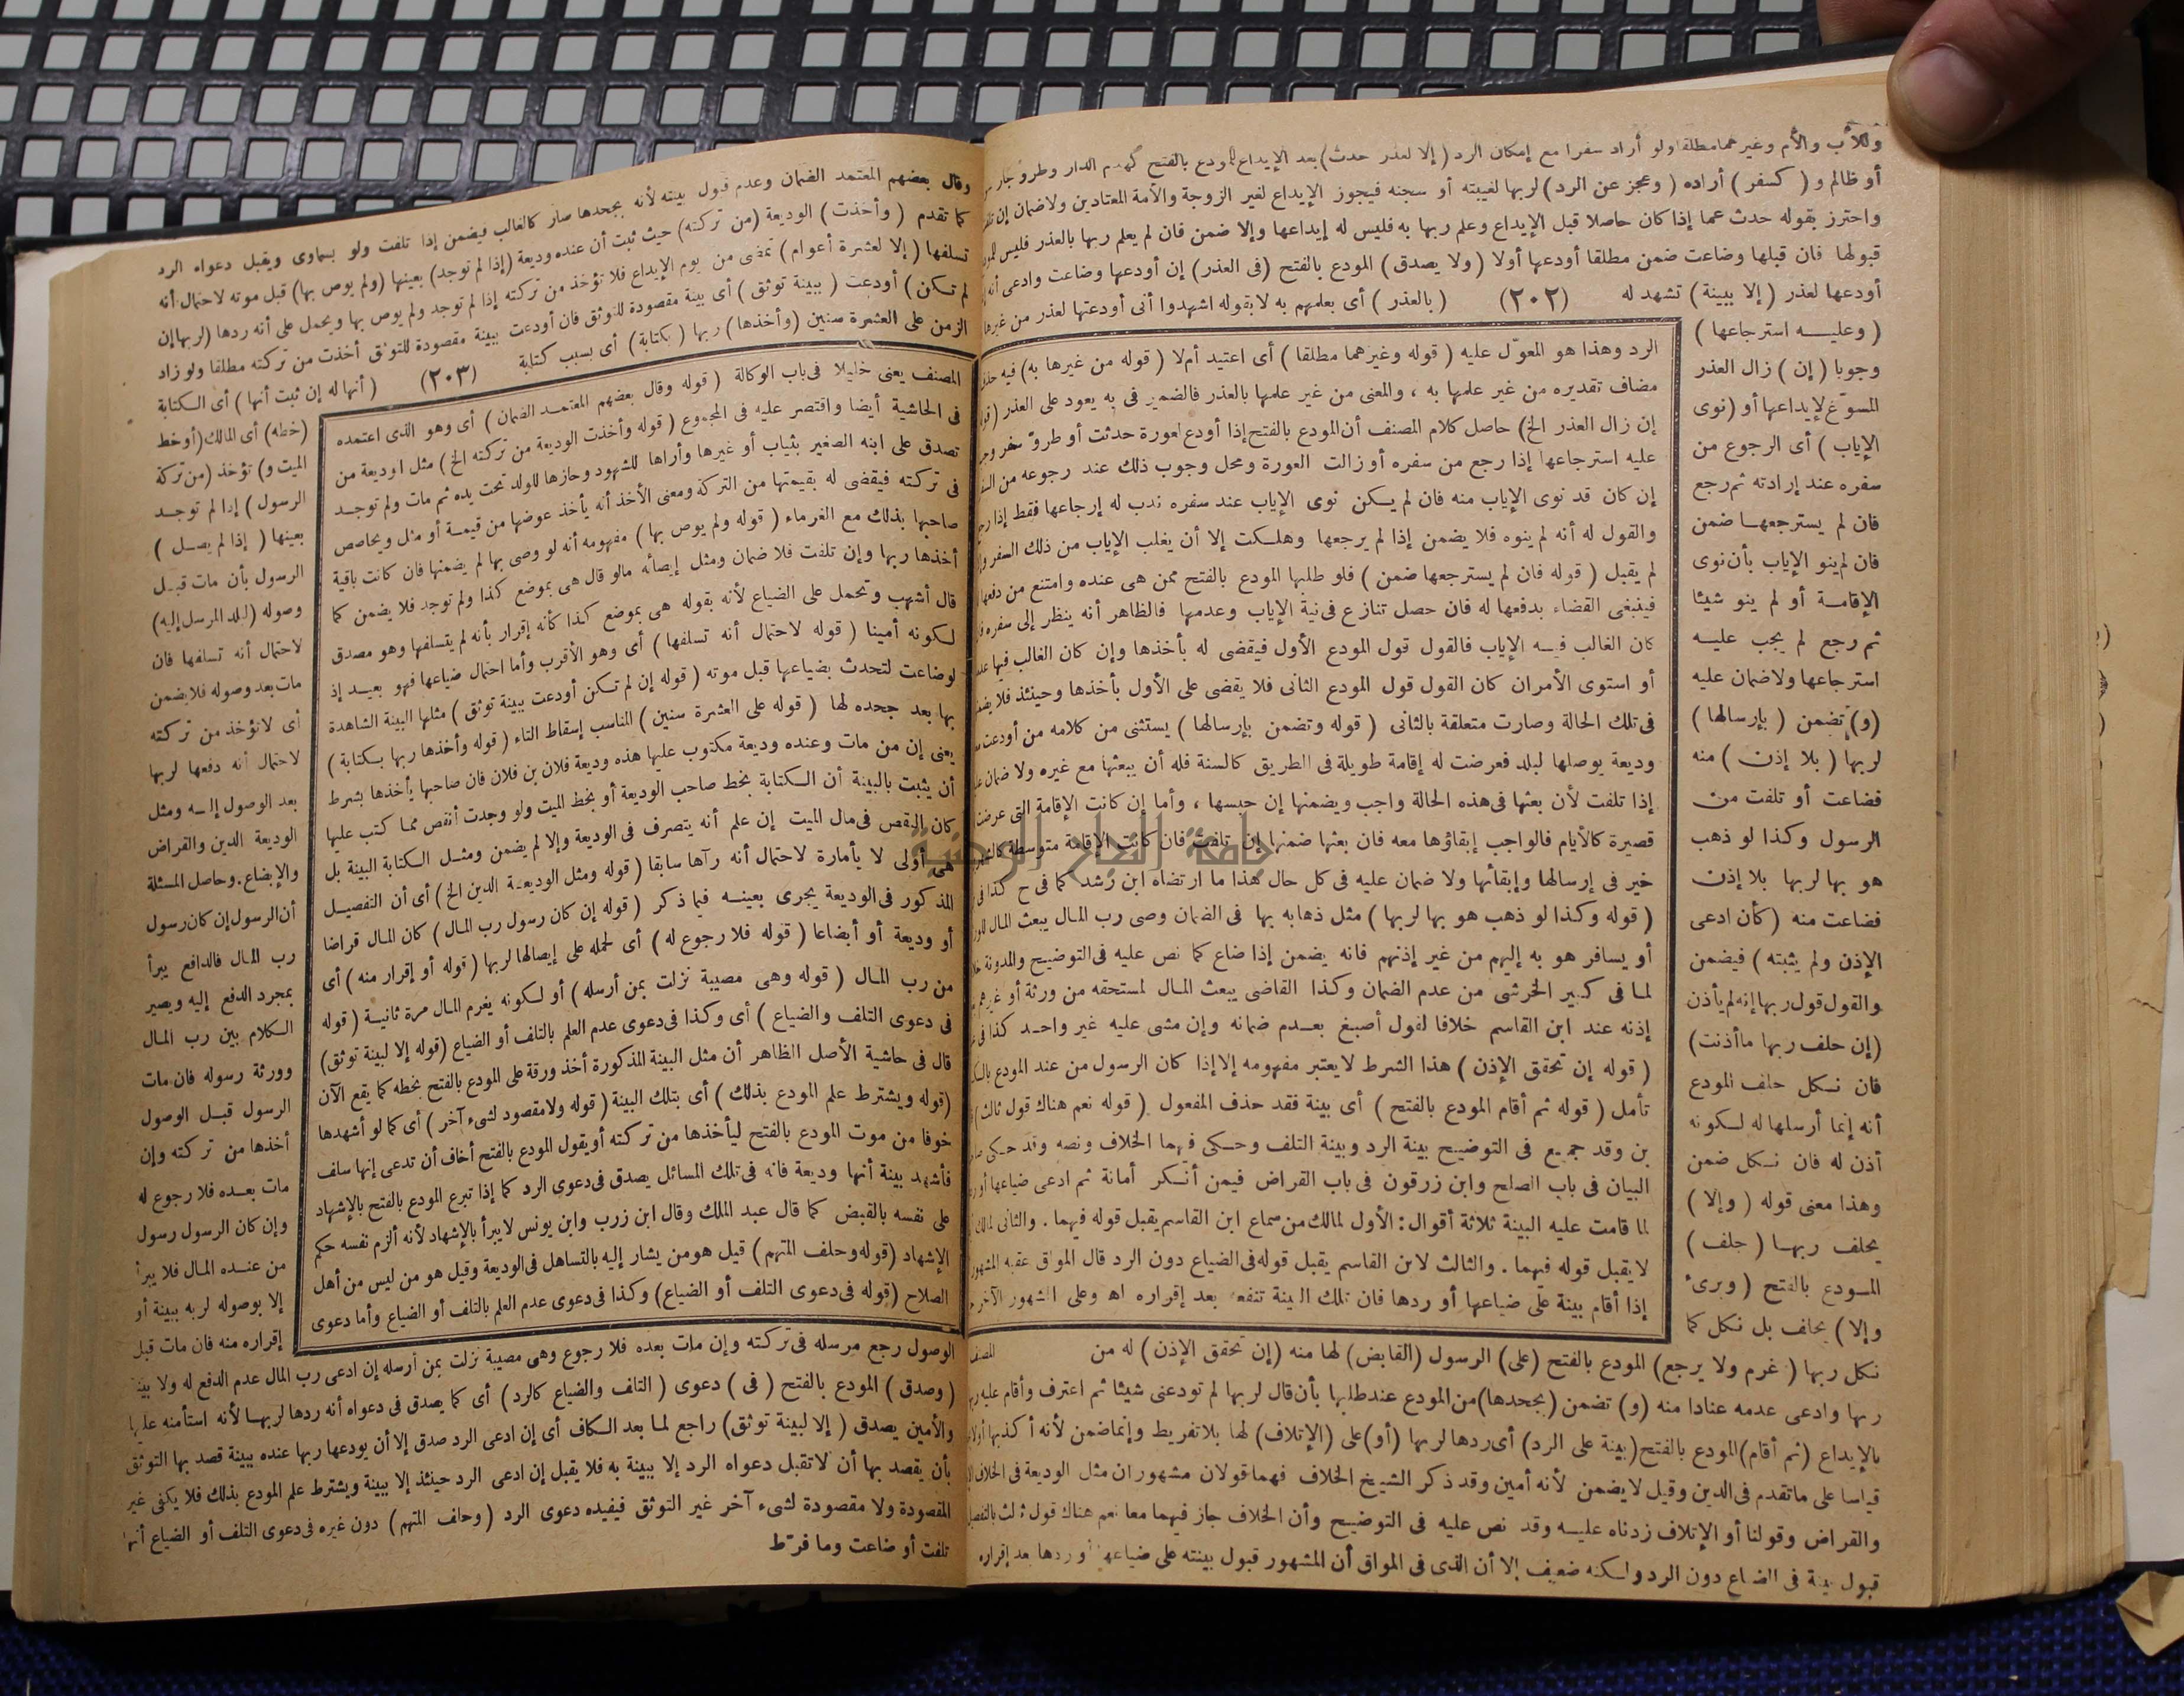 وللأب والأم وغيرهما مطلقا ولو أراد سفرا مع إمكان الرد (إلا لعذر حدث) بعد الإيداع لمودع بالفتح كهدم الدار وطرو جار
أو ظالم و (كسفر) أراده (وعجز عن الرد) لربها لغيبته أو سجنه فيجوز الإيداع لغير الزوجة والأمة المعتادين ولا ضمان إن
واحترز بقوله حدث عما إذا كان حاصلا قبل الإيداع وعلم ربها به فليس له إيداعها وإلا ضمن فان لم يعلم ربها بالعذر فليس
قبولها فان قبلها وضاعت ضمن مطلقا أودعها أولا (ولا يصدق) المودع بالفتح (فى العذر) إن أودعها وضاعت وادعى أنه
أودعها لعذر (إلا ببينة) تشهد له (٢٠٢) (بالعذر) أى بعلمهم به لا بقوله اشهدوا أنى أودعتها لعذر من غير
(وعليه استرجاعها)
وجوبا (إن) زال العذر
المسوّغ لإيداعها أو (نوى
الإياب) أى الرجوع من
سفره عند إرادته ثم رجع
فان لم يسترجعها ضمن
فان لم ينو الإياب بأن نوى
الإقامة أو لم ينو شيئا
ثم رجع لم يجب عليه
استرجاعها ولا ضمان عليه
(و) تضمن (بإرسالها)
لربها (بلا إذن) منه
فضاعت أو تلفت من
الرسول وكذا لو ذهب
هو بها لربها بلا إذن
فضاعت منه (كأن ادعى
الإذن ولم يثبته) فيضمن
والقول قول ربها إنه لم يأذن
(إن حلف ربها ما أذنت)
فان نكل حلف المودع
أنه إنما أرسلها له لكونه
أذن له فان نكل ضمن
وهذا معنى قوله (وإلا)
يحلف ربها (حلف)
المودع بالفتح (وبرئ
وإلا) يحلف بل نكل كما
الرد وهذا هو المعوّل عليه (قوله وغيرهما مطلقا) أى اعتيد أم لا (قوله من غيرها به) فيه
مضاف تقديره من غير علمها به ، والمعنى من غير علمها بالعذر فالضمير فى به يعود على العذر
إن زال العذر الخ) حاصل كلام المصنف أن المودع بالفتح إذا أودع لعورة حدثت أو طروّ سفر
عليه استرجاعها إذا رجع من سفره أو زالت العورة ومحل وجوب ذلك عند رجوعه من
إن كان قد نوى الإياب منه فان لم يكن نوى الإياب عند سفره ندب له إرجاعها فقط إذا
والقول له أنه لم ينوه فلا يضمن إذا لم يرجعها وهلكت إلا أن يغلب الإياب من ذلك السفر
لم يقبل (قوله فان لم يسترجعها ضمن) فلو طلبها المودع بالفتح ممن هى عنده وامتنع من دفعها
فينبغى القضاء بدفعها له فان حصل تنازع فى نية الإياب وعدمها فالظاهر أنه ينظر إلى سفره
كان الغالب فيه الإياب فالقول قول المودع الأول فيقضى له بأخذها وإن كان الغالب فيها
أو استوى الأمران كان القول قول المودع الثانى فلا يقضى على الأول بأخذها وحينئذ فلا
فى تلك الحالة وصارت متعلقة بالثانى (قوله وتضمن بإرسالها) يستثنى من كلامه من أودعت
وديعة يوصلها لبلد فعرضت له إقامة طويلة فى الطريق كالسنة فله أن يبعثها مع غيره ولا ضمان
إذا تلفت لأن بعثها فى هذه الحالة واجب ويضمنها إن حبسها ، وأما إن كانت الإقامة التى عرضت
قصيرة كالأيام فالواجب إبقاؤها معه فان بعثها ضمنها إن تلفت فان كانت الإقامة متوسطة
خير فى إرسالها وإبقائها ولا ضمان عليه فى كل حال هذا ما ارتضاه ابن رشد كما فى ح كذا فى
(قوله وكذا لو ذهب هو بها لربها) مثل ذهابه بها فى الضمان وصى رب المال يبعث المال
أو يسافر هو به إليهم من غير إذنهم فانه يضمن إذا ضاع كما نص عليه فى التوضيح والمدونة
لما فى كبير الخرشى من عدم الضمان وكذا القاضى يبعث المال لمستحقه من ورثة أو غيرهم
إذنه عند ابن القاسم خلافا لقول أصبغ بعدم ضمانه وإن مشى عليه غير واحد كذا فى
(قوله إن تحقق الإذن) هذا الشرط لا يعتبر مفهومه إلا إذا كان الرسول من عند المودع
تأمل (قوله ثم أقام المودع بالفتح) أى بينة فقد حذف المفعول (قوله نعم هناك قول ثالث)
بن وقد جمع فى التوضيح بينة الرد وبينة التلف وحكى فيهما الخلاف ونصه وقد حكى
البيان فى باب الصلح وابن زرقون فى باب القراض فيمن أنكر أمانة ثم ادعى ضياعها أو
لما قامت عليه البينة ثلاثة أقوال : الأول لمالك من سماع ابن القاسم يقبل قوله فيهما . والثانى لمالك
لا يقبل قوله فيهما . والثالث لابن القاسم يقبل قوله فى الضياع دون الرد قال المواق عقبه المشهور
إذا أقام بينة على ضياعها أو ردها فان تلك البينة تنفعه بعد إقراره اه وعلى المشهور الآخر
المصنف
نكل ربها (غرم ولا يرجع) المودع بالفتح (على) الرسول (القابض) لها منه (إن تحقق الإذن) له من
ربها وادعى عدمه عنادا منه (و) تضمن (بجحدها) من المودع عند طلبها بأن قال لربها لم تودعنى شيئا ثم اعترف وأقام عليه
بالإيداع (ثم أقام) المودع بالفتح (بينة على الرد) أى ردها لربها (أو) على (الإتلاف) لها بلا تفريط وإنما ضمن لأنه أكذبها أولا
قياسا على ما تقدم فى الدين وقيل لا يضمن لأنه أمين وقد ذكر الشيخ الخلاف فهما قولان مشهوران مثل الوديعة فى الخلاف
والقراض وقولنا أو الإتلاف زدناه عليه وقد نص عليه فى التوضيح وأن الخلاف جاز فيهما معا نعم هناك قول ثالث بالتفصيل
قبول بينة فى الضياع دون الرد ولكنه ضعيف إلا أن الذى فى المواق أن المشهور قبول بينته على ضياعها أو ردها بعد إقراره
وقال بعضهم المعتمد الضمان وعدم قبول بينته لأنه بجحدها صار كالغاصب فيضمن إذا تلفت ولو بسماوى ويقبل دعواه الرد
كما تقدم (وأخذت) الوديعة (من تركته) حيث ثبت أن عنده وديعة (إذا لم توجد) بعينها (ولم يوص بها) قبل موته لاحتمال أنه
تسلفها (إلا لعشرة أعوام) تمضى من يوم الإيداع فلا تؤخذ من تركته إذا لم توجد ولم يوص بها ويحمل على أنه ردها (لربها إن
لم تكن) أودعت (ببينة توثق) أى بينة مقصودة للتوثق فان أودعت ببينة مقصودة للتوثق أخذت من تركته مطلقا ولو زاد
الزمن على العشرة سنين (وأخذها) ربها (بكتابة) أى بسبب كتابة (٢٠٣) (أنها له إن ثبت أنها) أى الكتابة
المصنف يعنى خليلا فى باب الوكالة (قوله وقال بعضهم المعتمد الضمان) أى وهو الذى اعتمده
فى الحاشية أيضا واقتصر عليه فى المجموع (قوله وأخذت الوديعة من تركته الخ) مثل الوديعة من
تصدق على ابنه الصغير بثياب أو غيرها وأراها للشهود وحازها للولد تحت يده ثم مات ولم توجد
فى تركته فيقضى له بقيمتها من التركة ومعنى الأخذ أنه يأخذ عوضها من قيمة أو مثل ويحاصص
صاحبها بذلك مع الغرماء (قوله ولم يوص بها) مفهومه أنه لو وصى بها لم يضمنها فان كانت باقية
أخذها ربها وإن تلفت فلا ضمان ومثل إيصائه مالو قال هى بموضع كذا ولم توجد فلا يضمن كما
قال أشهب وتحمل على الضياع لأنه بقوله هى بموضع كذا كأنه إقرار بأنه لم يتسلفها وهو مصدق
لكونه أمينا (قوله لاحتمال أنه تسلفها) أى وهو الأقرب وأما احتمال ضياعها فهو بعيد إذ
لو ضاعت لتحدث بضياعها قبل موته (قوله إن لم تكن أودعت ببينة توثق) مثلها البينة الشاهدة
بها بعد جحده لها (قوله على العشرة سنين) المناسب إسقاط التاء (قوله وأخذها ربها بكتابة)
يعنى إن من مات وعنده وديعة مكتوب عليها هذه وديعة فلان بن فلان فان صاحبها يأخذها بشرط
أن يثبت بالبينة أن الكتابة بخط صاحب الوديعة أو بخط الميت ولو وجدت أنقص مما كتب عليها
كان النقص فى مال الميت إن علم أنه يتصرف فى الوديعة وإلا لم يضمن ومثل الكتابة البينة بل
هى أولى لا بأمارة لاحتمال أنه رآها سابقا (قوله ومثل الوديعة الدين الخ) أى أن التفصيل
المذكور فى الوديعة يجرى بعينه فيما ذكر (قوله إن كان رسول رب المال) كان المال قراضا
أو وديعة أو أبضاعا (قوله فلا رجوع له) أى لحمله على إيصالها لربها (قوله أو إقرار منه) أى
من رب المال (قوله وهى مصيبة نزلت بمن أرسله) أو لكونه يغرم المال مرة ثانية (قوله
فى دعوى التلف والضياع) أى وكذا فى دعوى عدم العلم بالتلف أو الضياع (قوله إلا لبينة توثق)
قال فى حاشية الأصل الظاهر أن مثل البينة المذكورة أخذ ورقة على المودع بالفتح بخطه كما يقع الآن
(قوله ويشترط علم المودع بذلك) أى بتلك البينة (قوله ولا مقصود لشىء آخر) أى كما لو أشهدها
خوفا من موت المودع بالفتح ليأخذها من تركته أو يقول المودع بالفتح أخاف أن تدعى إنها سلف
فأشهد بينة أنها وديعة فانه فى تلك المسائل يصدق فى دعوى الرد كما إذا تبرع المودع بالفتح بالإشهاد
على نفسه بالقبض كما قال عبد الملك وقال ابن زرب وابن يونس لا يبرأ بالإشهاد لأنه ألزم نفسه حكم
الإشهاد (قوله وحلف المتهم) قيل هو من يشار إليه بالتساهل فى الوديعة وقيل هو من ليس من أهل
الصلاح (قوله فى دعوى التلف أو الضياع) وكذا فى دعوى عدم العلم بالتلف أو الضياع وأما دعوى
(خطه) أى المالك (أو خط
الميت و) تؤخذ (من تركة
الرسول) إذا لم توجد
بعينها (إذا لم يصل)
الرسول بأن مات قبل
وصوله (لبلد المرسل إليه)
لاحتمال أنه تسلفها فان
مات بعد وصوله فلا يضمن
أى لا تؤخذ من تركته
لاحتمال أنه دفعها لربها
بعد الوصول إليه ومثل
الوديعة الدين والقراض
والإبضاع. وحاصل المسئلة
أن الرسول إن كان رسول
رب المال فالدافع يبرأ
بمجرد الدفع إليه ويصير
الكلام بين رب المال
وورثة رسوله فان مات
الرسول قبل الوصول
أخذها من تركته وإن
مات بعده فلا رجوع له
وإن كان الرسول رسول
من عنده المال فلا يبرأ
إلا بوصوله لربه ببينة أو
إقراره منه فان مات قبل
الوصول رجع مرسله فى تركته وإن مات بعده فلا رجوع وهى مصيبة نزلت بمن أرسله إن ادعى رب المال عدم الدفع له ولا بينة
(وصدق) المودع بالفتح (فى) دعوى (التلف والضياع كالرد) أى كما يصدق فى دعواه أنه ردها لربها لأنه استأمنه عليها
والأمين يصدق (إلا لبينة توثق) راجع لما بعد الكاف أى إن ادعى الرد صدق إلا أن يودعها ربها عنده ببينة قصد بها التوثق
بأن يقصد بها أن لا تقبل دعواه الرد إلا ببينة به فلا يقبل إن ادعى الرد حينئذ إلا ببينة ويشترط علم المودع بذلك فلا يكفى غير
المقصودة ولا مقصودة لشىء آخر غير التوثق فيفيده دعوى الرد (وحلف المتهم) دون غيره فى دعوى التلف أو الضياع أنها
تلفت أو ضاعت وما فرّط
جامعة النجاح الوطنية